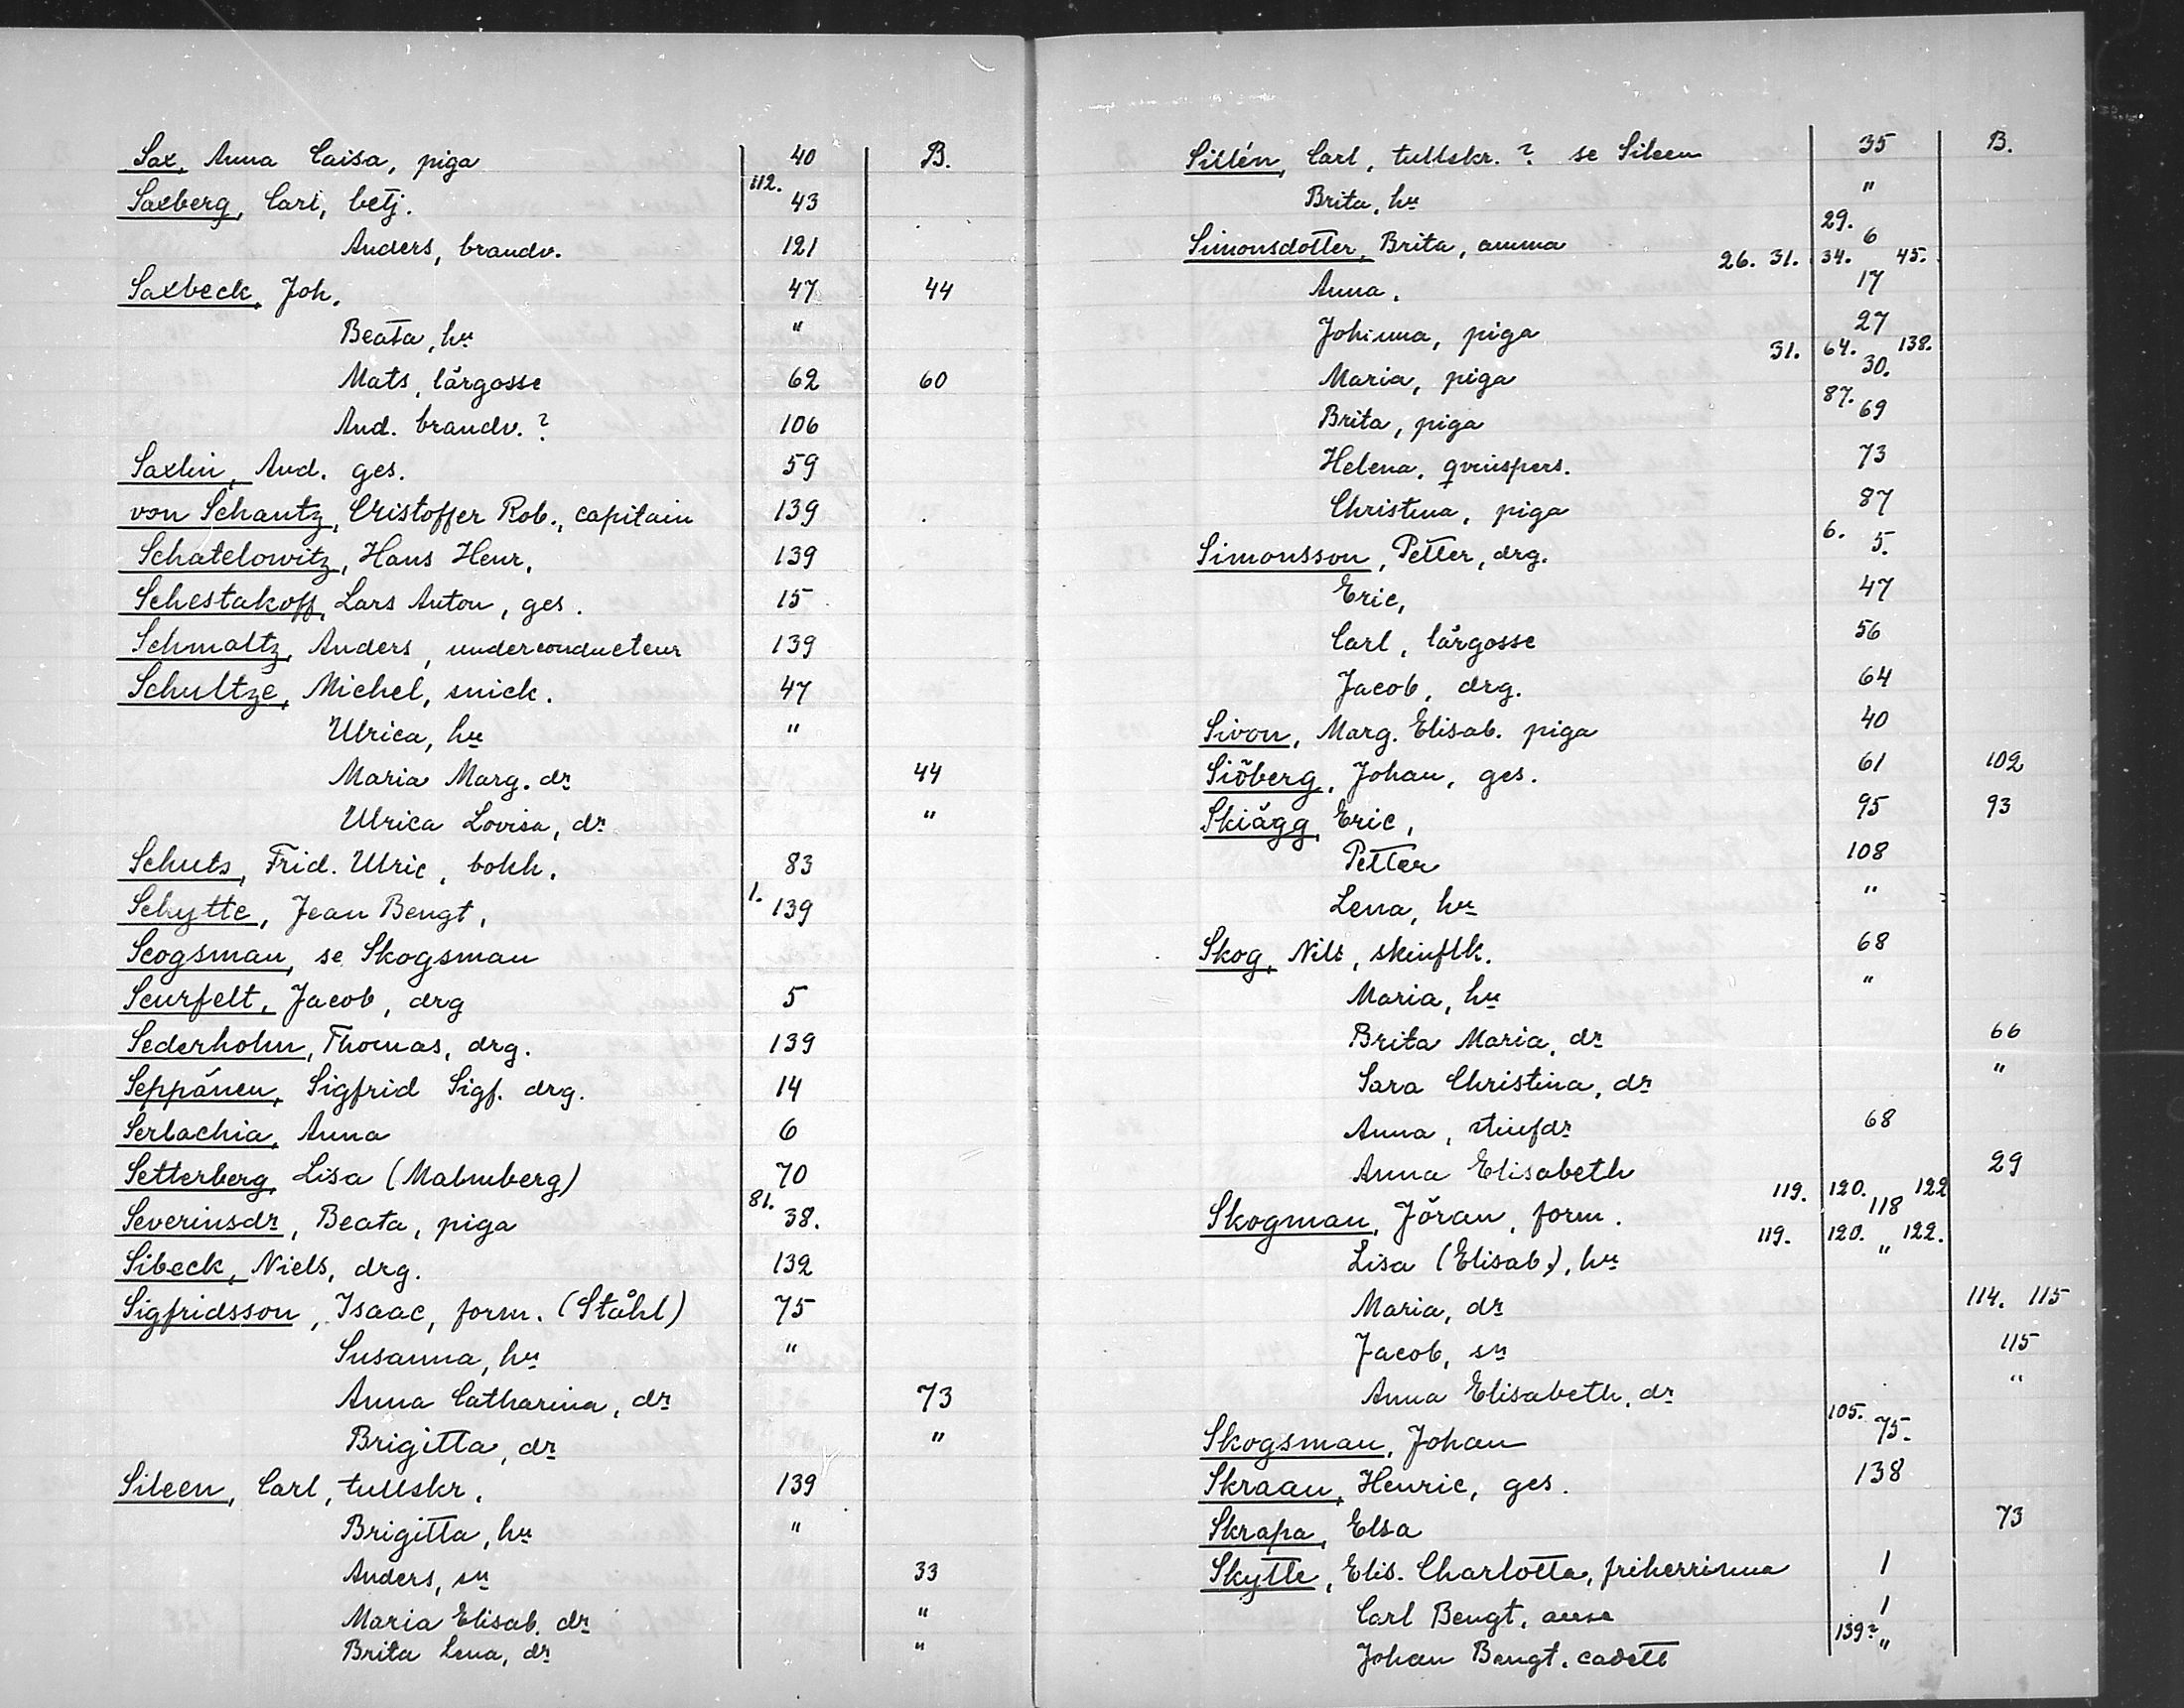 Sax, Anna Caisa, piga 40 B.
Saxberg, Carl, betj. 112. 43
Anders, brandv. 121
Saxbeck, Joh. 47 44
Beata, hu "
Mats, lärgosse 62 60
And. brandv. ? 106
Saxlin, And. ges. 59
von Schantz, Cristoffer Rob., capitain 139
Schatelowitz, Hans Henr. 139
Schestakoff, Lars Anton, ges. 15
Schmaltz, Anders, underconducteur 139
Schultze, Michel, snick. 47
Ulrica, hu "
Maria Marg. dr 44
Ulrica Lovisa, dr "
Schuts, Frid. Ulric, bokh. 83
Schytte, Jean Bengt, 1. 139
Scogsman, se Skogsman
Scurfelt, Jacob, drg 5
Sederholm, Thomas, drg. 139
Seppänen, Sigfrid Sigf. drg. 14
Serlachia, Anna 6
Setterberg, Lisa (Malmberg) 70
Severinsdr, Beata, piga 81. 38.
Sibeck, Niels, drg. 132
Sigfridsson, Isaac, form. (Ståhl) 75
Susanna, hu "
Anna Catharina, dr 73
Brigitta, dr "
Sileen, Carl, tullskr. 139
Brigitta, hu "
Anders, sn 33
Maria Elisab. dr "
Brita Lena, dr "
Sillén, Carl, tullskr. ? se Sileen 35 B.
Brita, hu "
Simonsdotter, Brita, amma 29. 6
Anna, 26. 31. 34. 45. 17
Johanna, piga 27
Maria, piga 31. 64. 138. 30.
Brita, piga 87. 69
Helena, qvinspers. 73
Christina, piga 87
Simonsson, Petter, drg. 6. 5.
Eric, 47
Carl, lärgosse 56
Jacob, drg. 64
Sivon, Marg. Elisab. piga 40
Siöberg, Johan, ges. 61 102
Skiägg, Eric, 95 93
Petter 108
Lena, hu "
Skog, Nils, 68
Maria, hu "
Brita Maria, dr 66
Sara Christina, dr "
Anna, stiufdr 68
Anna Elisabeth 29
Skogman, Jöran, form. 119. 120. 118 122
Lisa (Elisab.), hu 119. 120. " 122.
Maria, dr 114. 115
Jacob, sn 115
Anna Elisabeth, dr "
Skogsman, Johan 105. 75.
Skraan, Henric, ges. 138
Skrapa, Elsa 73
Skytte, Elis. Charlotta, friherrinna 1
Carl Bengt, 1
Johan Bengt. cadett 139? "